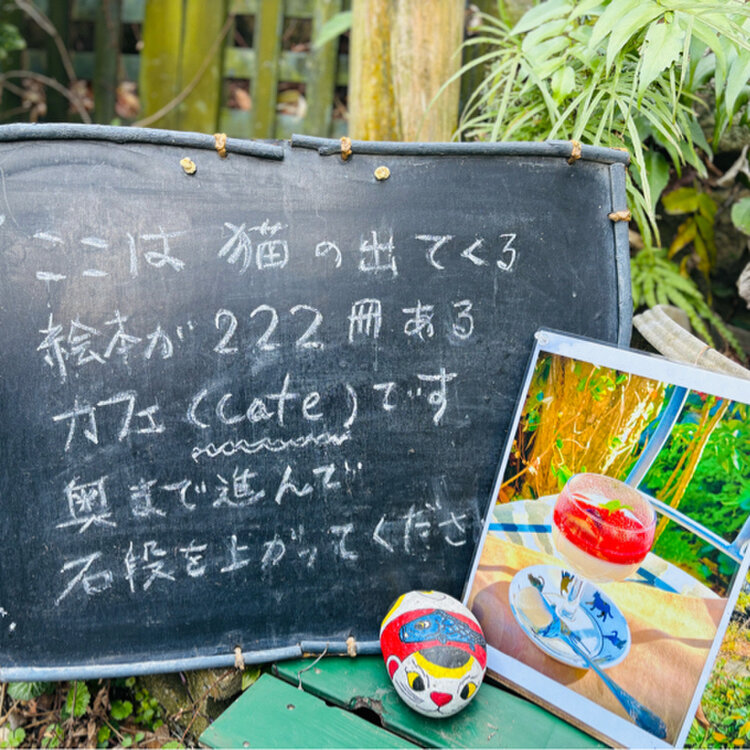 ここは猫の出てくる
絵本が222冊ある
カフェ(cate)です
奥まで進んで
石段を上がってくださ